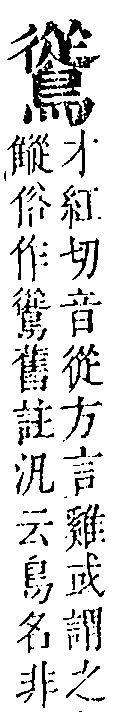 䡮
才紅切音從方言雞或謂之
鏦俗作䡮舊註汎云鳥名非